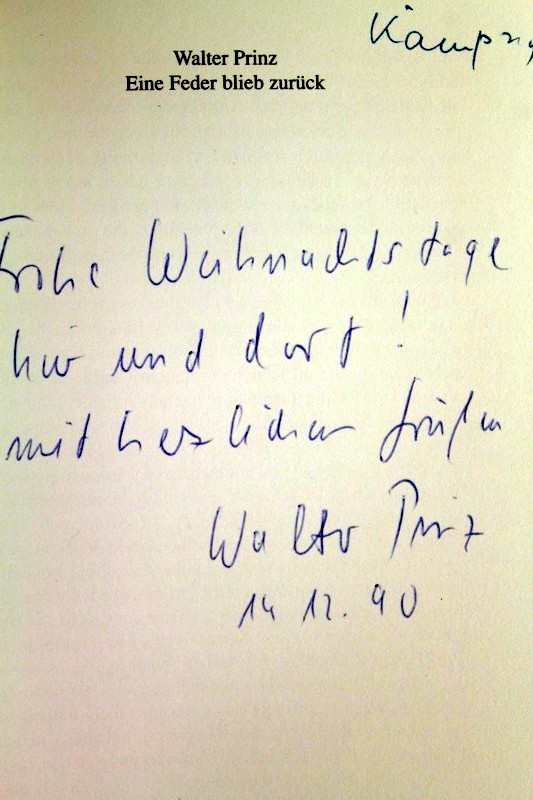 Walter Prinz
Eine Feder blieb zurück
Frohe Weihnachtstage
hier und dort!
mit herzlichen Grüßen
Walter Prinz
14 12. 90